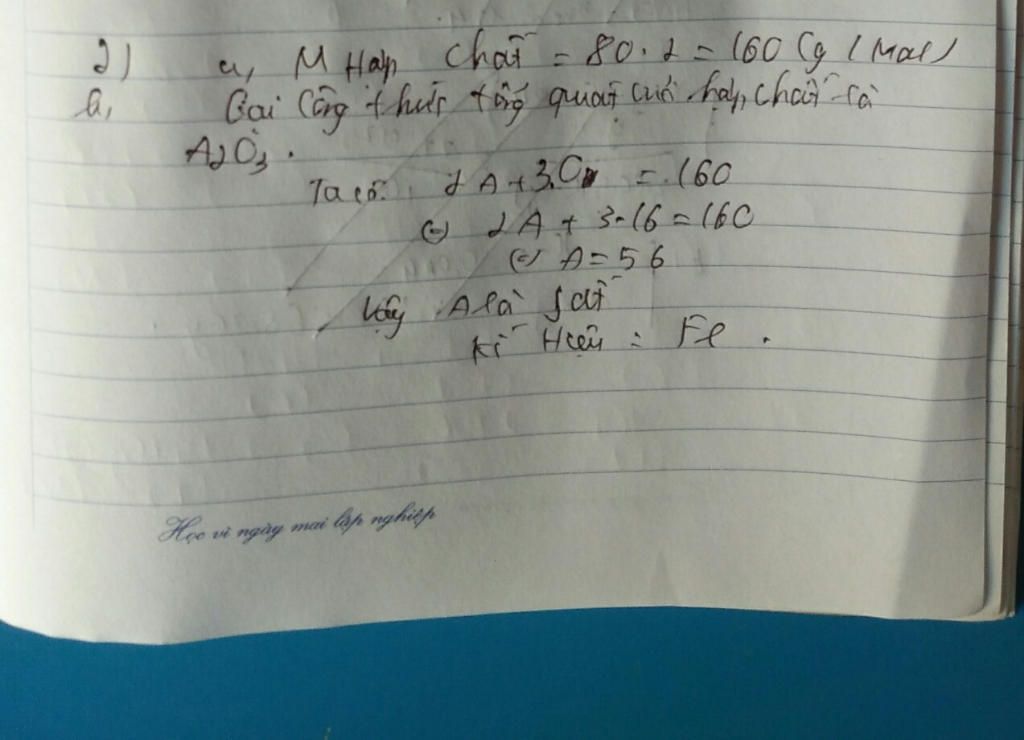 2) a, M Hợp chất = 80.2 = 160 (g / mol)
a, Gọi công thức tổng quát của hợp chất là
A2O3.
Ta có: 2A + 3.O = 160
(=) 2A + 3.16 = 160
(=) A = 56
Vậy A là sắt
Kí Hiệu : Fe .
Học vì ngày mai lập nghiệp